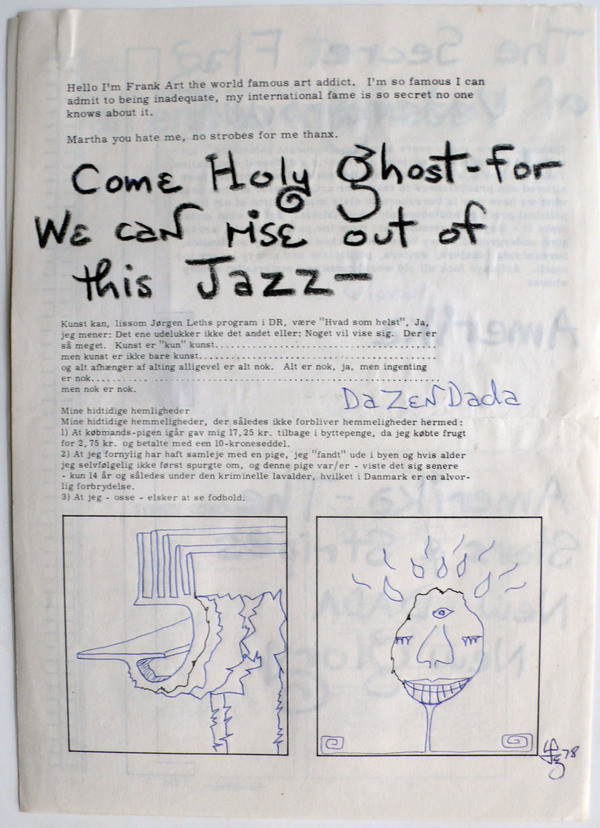 Hello I'm Frank Art the world famous art addict. I'm so famous I can
admit to being inadequate, my international fame is so secret no one
knows about it.
Martha you hate me, no strobes for me thanx.
Come Holy ghost-for
We can rise out of
this Jazz—
Kunst kan, lissom Jørgen Leths program i DR, være "Hvad som helst", Ja,
jeg mener: Det ene udelukker ikke det andet eller: Noget vil vise sig. Der er
så meget. Kunst er "kun" kunst.......................................
men kunst er ikke bare kunst.........................................
og alt afhænger af alting alligevel er alt nok. Alt er nok, ja, men ingenting
er nok.......................................................
men nok er nok.
DaZenDada
Mine hidtidige hemligheder
Mine hidtidige hemmeligheder, der således ikke forbliver hemmeligheder hermed :
1) At købmands-pigen igår gav mig 17,25 kr. tilbage i byttepenge, da jeg købte frugt
for 2,75 kr. og betalte med een 10-kroneseddel.
2) At jeg fornylig har haft samleje med en pige, jeg "fandt" ude i byen og hvis alder
jeg selvfølgelig ikke først spurgte om, og denne pige var/er - viste det sig senere
- kun 14 år og således under den kriminelle lavalder, hvilket i Danmark er en alvor-
lig forbrydelse.
3) At jeg - osse - elsker at se fodbold.
78